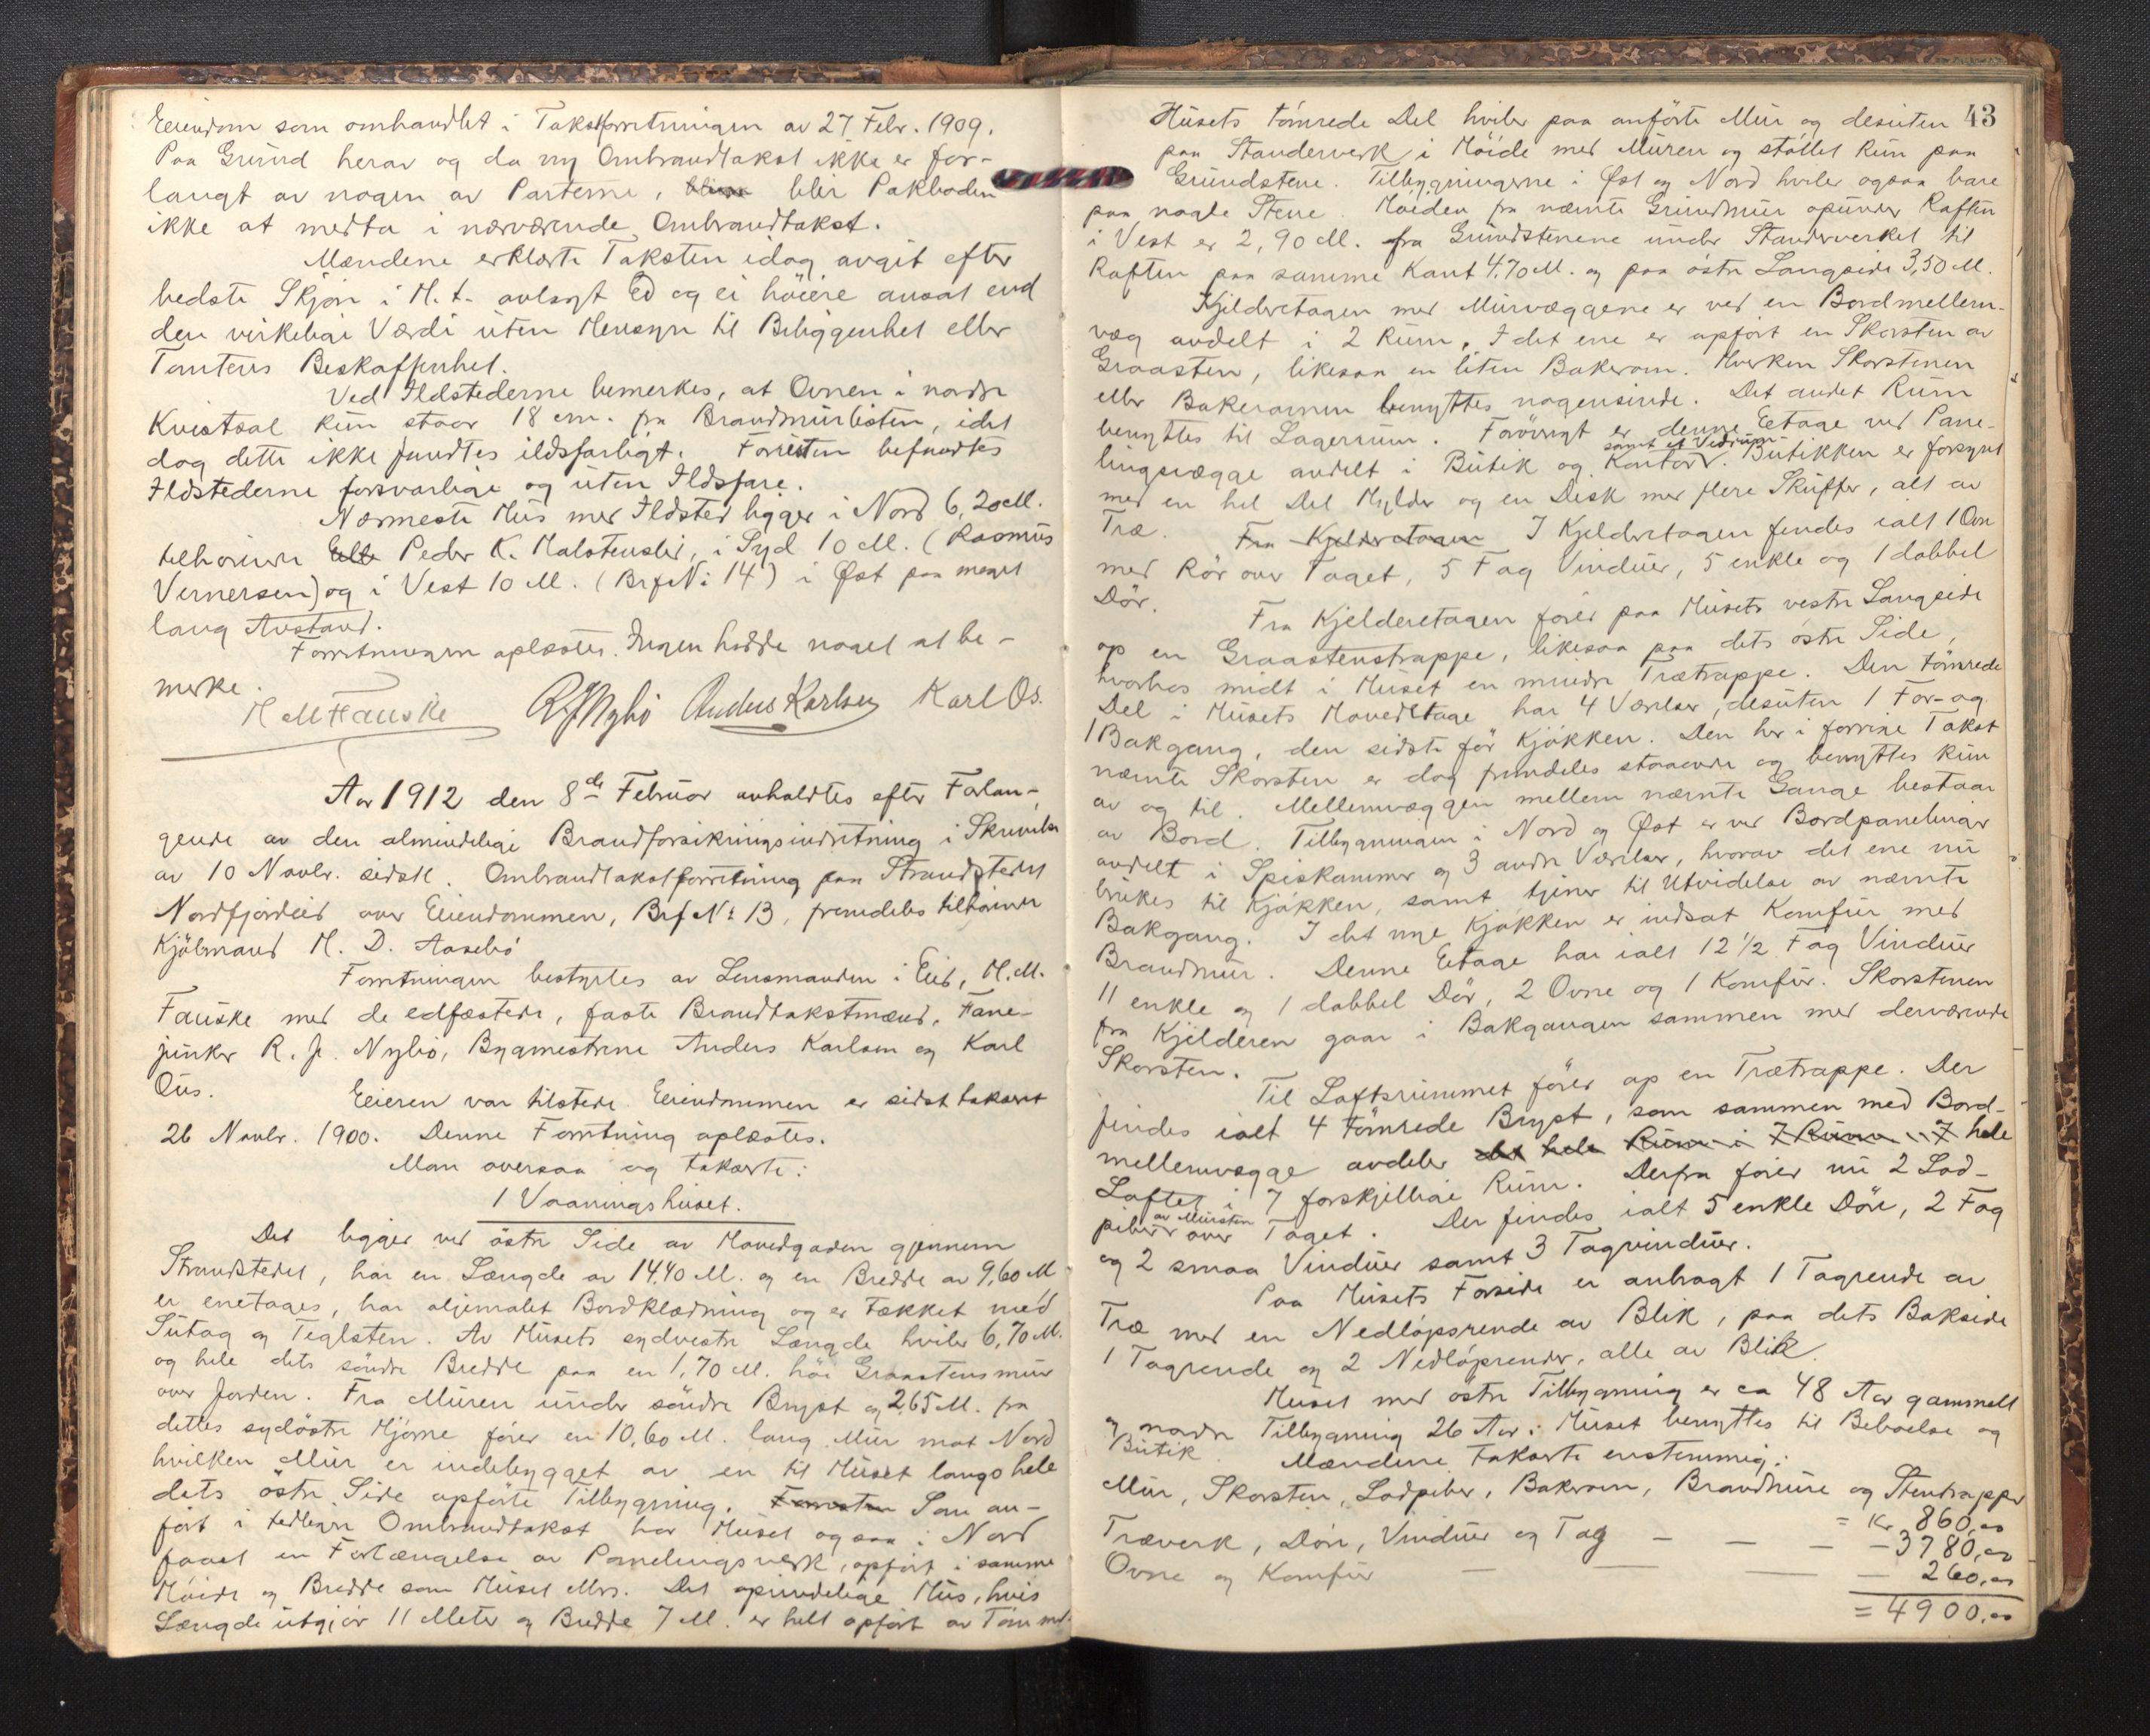 Eiendom som omhandlet i Takstforretningen av 27 Febr. 1909.
Paa Grund herav og da ny Ombrandtakst ikke er for-
langt av nogen av Parterne, blir Pakboden
ikke at medta i nærværende Ombrandtakst.
Mændene erklærte Taksten idag avgit efter
bedste Skjøn i H. t. avlagt Ed og ei høiere ansat end
den virkelige Værdi uten Hensyn til Beliggenhet eller
Tomtens Beskaffenhet.
Ved Ildstederne bemerkes, at Ovnen i nordre
Kvistsal kun staar 18 cm. fra Brandmurlisten, idet
dog dette ikke fandtes ildsfarligt. Foruten befandtes
Ildstederne forsvarlige og uten Ildsfare.
Nærmeste Hus med Ildsted ligger i Nord 6,20 M.
tilhørende Peder K. , i Syd 10 M. (Rasmus
Vernersen) og i Vest 10 M. (Brf No 14) i Øst paa meget
lang Avstand.
Forretningen oplæstes. Ingen hadde noget at be-
merke.
H M Fauske R J Nybø Anders Karlsen Karl Os.
Aar 1912 den 8de Februar avholdtes efter Forlan-
gende av den almindelige Brandforsikringsindretning i Skrivelse
av 10 Novbr. sidstl. Ombrandtakstforretning paa Strandstedet
Nordfjordeid over Eiendommen, Brf No 13, fremdeles tilhørende
Kjøbmand H. D. Aasebø
Forretningen bestyrtes av Lensmanden i Eid, H. M.
Fauske med de edfæstede, faste Brandtakstmænd, Fane-
junker R. J. Nybø, Bygmestrene Anders Karlsen og Karl
Os.
Eieren var tilstede. Eiendommen er sidst takseret
26 Novbr. 1900. Denne Forretning oplæstes.
Man oversaa og takserte:
1 Vaaningshuset.
Det ligger ved østre Side av Hovedgaden gjennem
Strandstedet, har en Længde av 14,40 M. og en Bredde av 9,60 M
er enetages, har oljemalet Bordklædning og er tækket med
Sutag og Teglsten. Av Husets sydvestre Længde hviler 6,70 M.
og hele dets søndre Bredde paa en 1,70 M. høi Graastensmur
over Jorden. Fra Muren under søndre Bryst og 2,65 M. fra
dettes sydøstre Hjørne fører en 10,60 M. lang Mur mot Nord
hvilken Mur er indebygget av en til Huset langs hele
dets østre Side opførte Tilbygning. Som an-
ført i tidligere Ombrandtakst har Huset ogsaa i Nord
faaet en Forlængelse av Panelingsverk, opført i samme
Høide og Bredde som Huset ellers. Det oprindelige Hus, hvis
Længde utgjør 11 Meter og Bredde 7 M. er helt opført av Tømmer.
43
Husets tømrede Del hviler paa anførte Mur og desuten
paa Standerverk i Høide med Muren og støttet kun paa
Grundstene. Tilbygningerne i Øst og Nord hviler ogsaa bare
paa nogle Stene. Høiden fra nævnte Grundmur opunder Raften
i Vest er 2,90 M. fra Grundstenene under Standerverket til
Raften paa samme Kant 4,70 M. og paa østre Langside 3,50 M.
Kjelderetagen med Murvæggene er ved en Bordmellem-
væg avdelt i 2 Rum. I det ene er opført en Skorsten av
Graasten, likesaa en liten Bakerovn. Hverken Skorstenen
eller Bakerovnen benyttes nogensinde. Det andet Rum
benyttes til Lagerrum. Forøvrigt er denne Eetage ved Pane-
lingsvægge avdelt i Butik og Kontor samt et Vedrum. Butikken er forsynt
med en hel Del Hylder og en Disk med flere Skuffer, alt av
Træ. Fra Kjelderetagen I Kjelderetagen findes ialt 1 Ovn
med Rør over Taget, 5 Fag Vinduer, 5 enkle og 1 dobbel
Dør.
Fra Kjelderetagen fører paa Husets vestre Langside
op en Graastenstrappe, likesaa paa dets østre Side,
hvorhos midt i Huset en mindre Trætrappe. Den tømrede
Del i Husets Hovedetage har 4 Værelser, desuten 1 For- og
1 Bakgang, den sidste før Kjøkken. Den her i forrige Takst
nævnte Skorsten er dog fremdeles staaende og benyttes kun
av og til. Mellemvæggen mellem nævnte Gange bestaar
av Bord. Tilbygningen i Nord og Øst er ved Bordpanelinger
avdelt i Spiskammer og 3 andre Værelser, hvorav det ene nu
brukes til Kjøkken, samt tjener til Utvidelse av nævnte
Bakgang. I det nye Kjøkken er indsat Komfur med
Brandmur. Denne Etage har ialt 12 1/2 Fag Vinduer
11 enkle og 1 dobbel Dør, 2 Ovne og 1 Komfur. Skorstenen
fra Kjelderen gaar i Bakgangen sammen med derværende
Skorsten.
Til Loftsrummet fører op en Trætrappe. Der
findes ialt 4 tømrede Bryst, som sammen med Bord-
mellemvægge avdeler det hele Rum i 7 Rum hele
Loftet i 7 forskjellige Rum. Derfra fører nu 2 Lod-
piber av Mursten over Taget. Der findes ialt 5 enkle Døre, 2 Fag
og 2 smaa Vinduer samt 3 Tagvinduer.
Paa Husets Forside er anbragt 1 Tagrende av
Træ med en Nedløpsrende av Blik, paa dets Bakside
1 Tagrende og 2 Nedløprender, alle av Blik.
Huset med østre Tilbygning er ca 48 Aar gammelt
og nordre Tilbygning 26 Aar. Huset benyttes til Beboelse og
Butik. Mændene takserte enstemmig:
Mur, Skorsten, Lodpiber, Bakerovn, Brandmure og Stentrapper
= Kr 860,00
Træverk, Døre, Vinduer og Tag — — — — 3780,00
Ovne og Komfur — — — — 260,00
= 4900,00